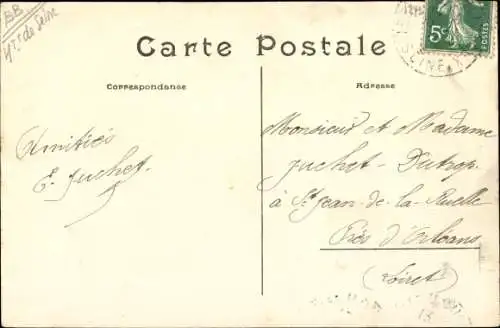 BB
Vr. de Seine
Carte Postale
Correspondance
Adresse
5c
SEINE
Amitiés
E. Juchet.
Monsieur et Madame
Juchet-Dutrop.
à St Jean-de-la-Ruelle
Près d'Orléans
(Loiret)